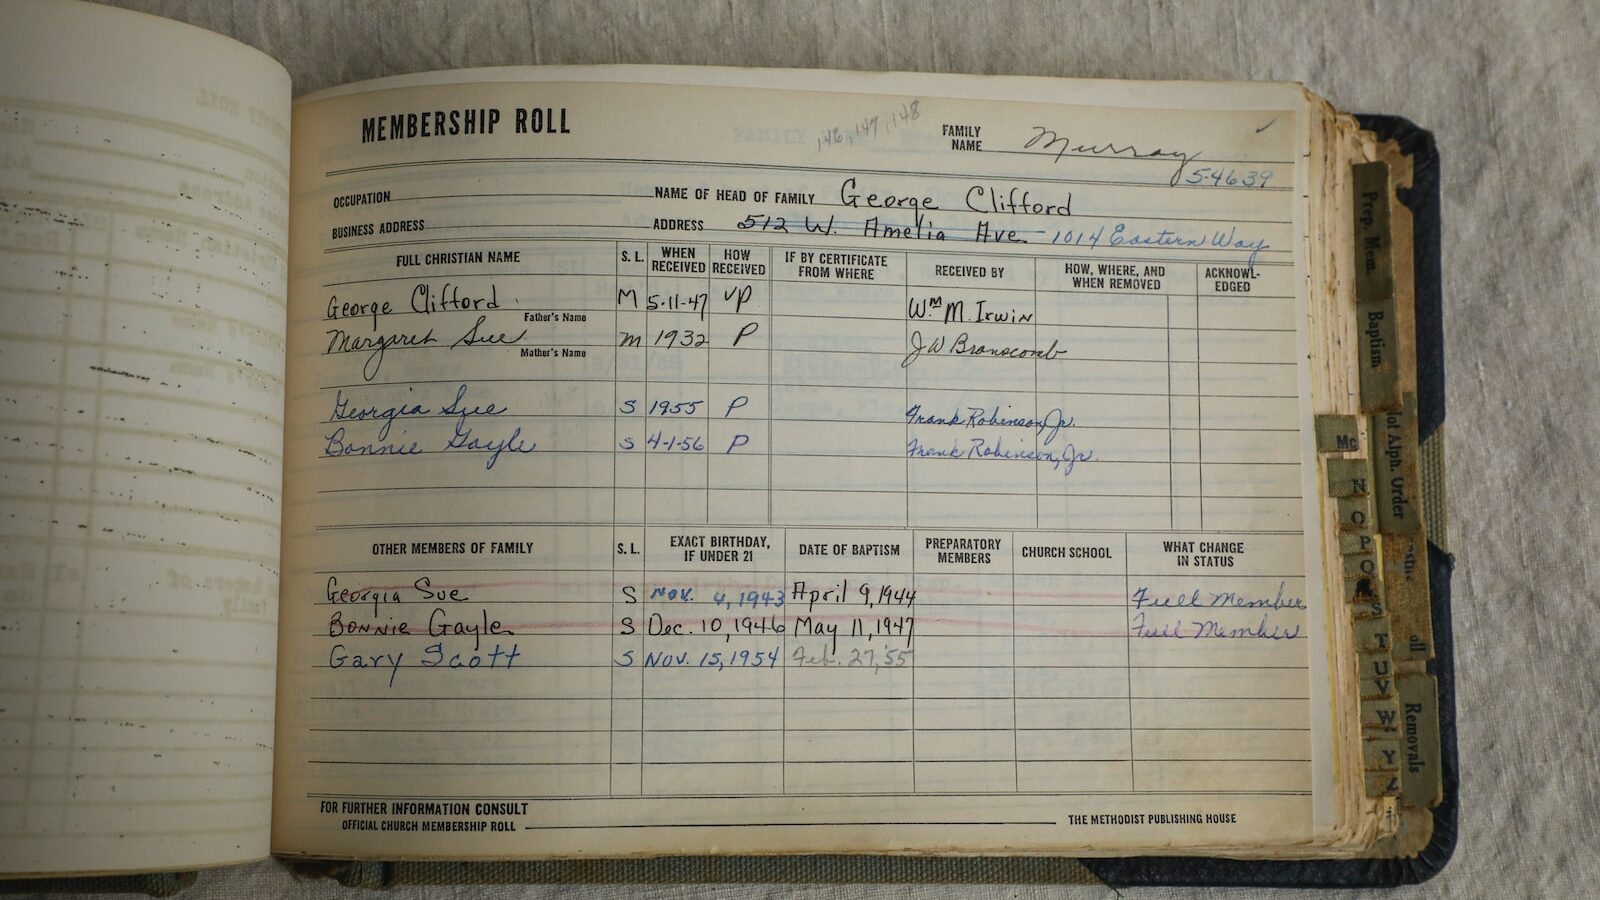 MEMBERSHIP ROLL
146, 147, 148
FAMILY NAME Murray
5-4639
OCCUPATION NAME OF HEAD OF FAMILY George Clifford
BUSINESS ADDRESS ADDRESS 512 W. Amelia Ave. 1014 Eastern Way
FULL CHRISTIAN NAME S. L. WHEN RECEIVED HOW RECEIVED IF BY CERTIFICATE FROM WHERE RECEIVED BY HOW, WHERE, AND WHEN REMOVED ACKNOWL-EDGED
George Clifford M 5-11-47 VP Wm M. Irwin
Father's Name
Margaret Sue M 1932 P J W Branscomb
Mother's Name
Georgia Sue S 1955 P Frank Robinson, Jr.
Bonnie Gayle S 4-1-56 P Frank Robinson, Jr.
OTHER MEMBERS OF FAMILY S. L. EXACT BIRTHDAY, IF UNDER 21 DATE OF BAPTISM PREPARATORY MEMBERS CHURCH SCHOOL WHAT CHANGE IN STATUS
Georgia Sue S Nov. 4, 1943 April 9, 1944 Full Member
Bonnie Gayle S Dec. 10, 1946 May 11, 1947 Full Member
Gary Scott S Nov. 15, 1954 Feb. 27, '55
FOR FURTHER INFORMATION CONSULT
OFFICIAL CHURCH MEMBERSHIP ROLL THE METHODIST PUBLISHING HOUSE
Prep. Mem.
Baptism
Alph. Order
Removals
Mc
N
O
P
Q
S
T
U
V
W
Y
Z